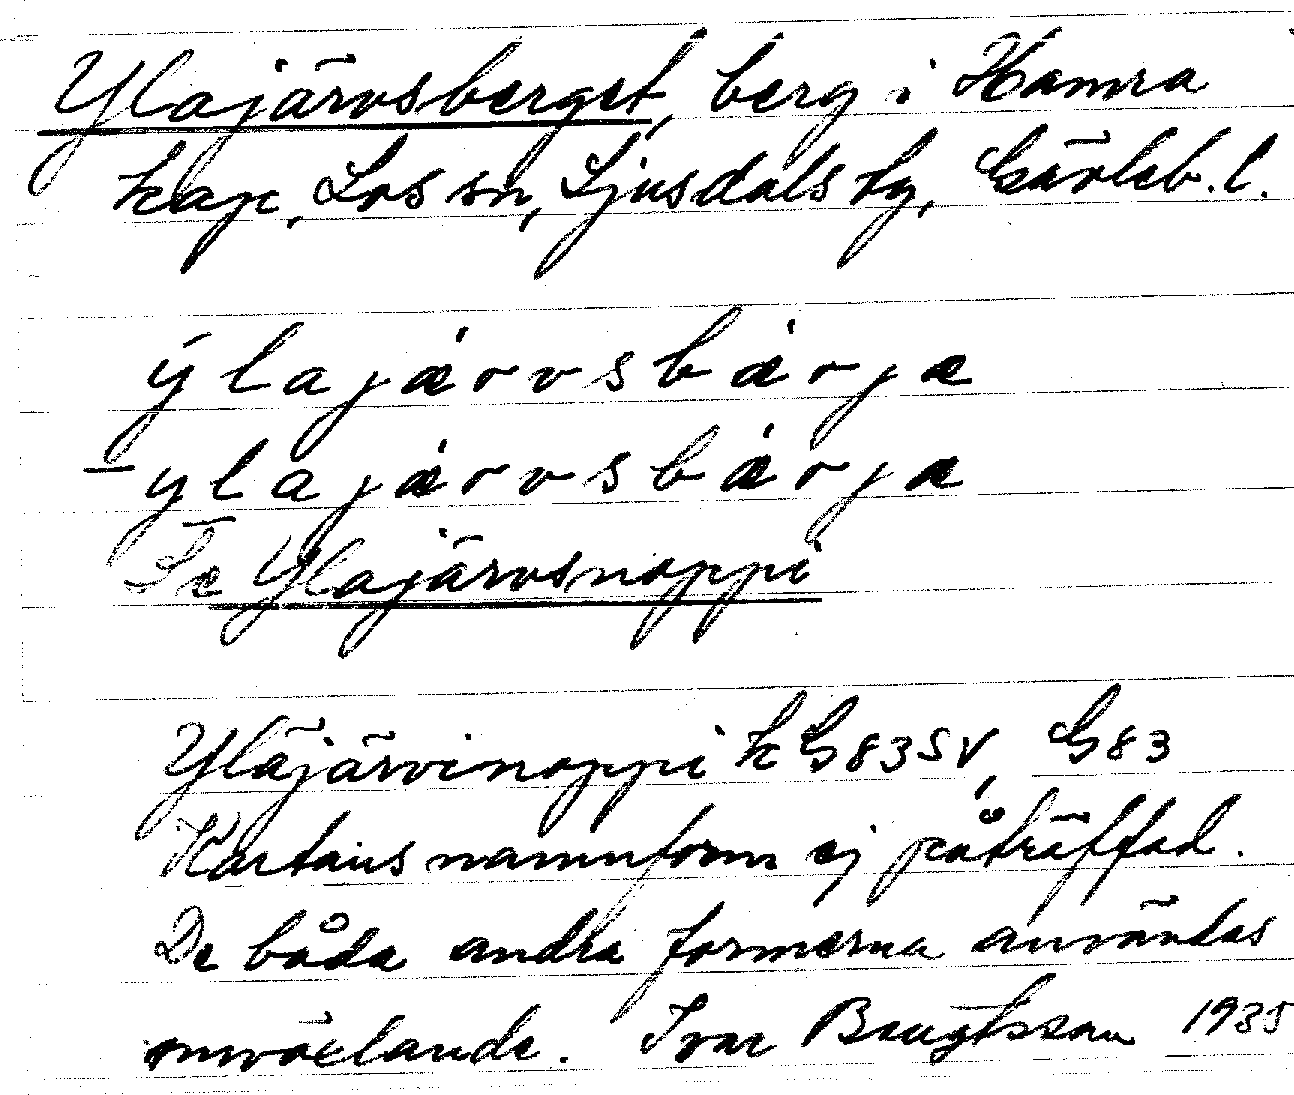 Ylajärvsberget, berg i Hamra
kap, Los sn, Ljusdals tg, Gävleb. l.
ýlajȧrvsbȧrjæ
– ylajȧrvsbȧrjæ
Se Ylajärvsnoppi
Yläjärvinoppi k G83SV, G83
Kartans namnform ej påträffad.
De båda andra formerna användas
omväxlande. Ivar Bengtsson 1935